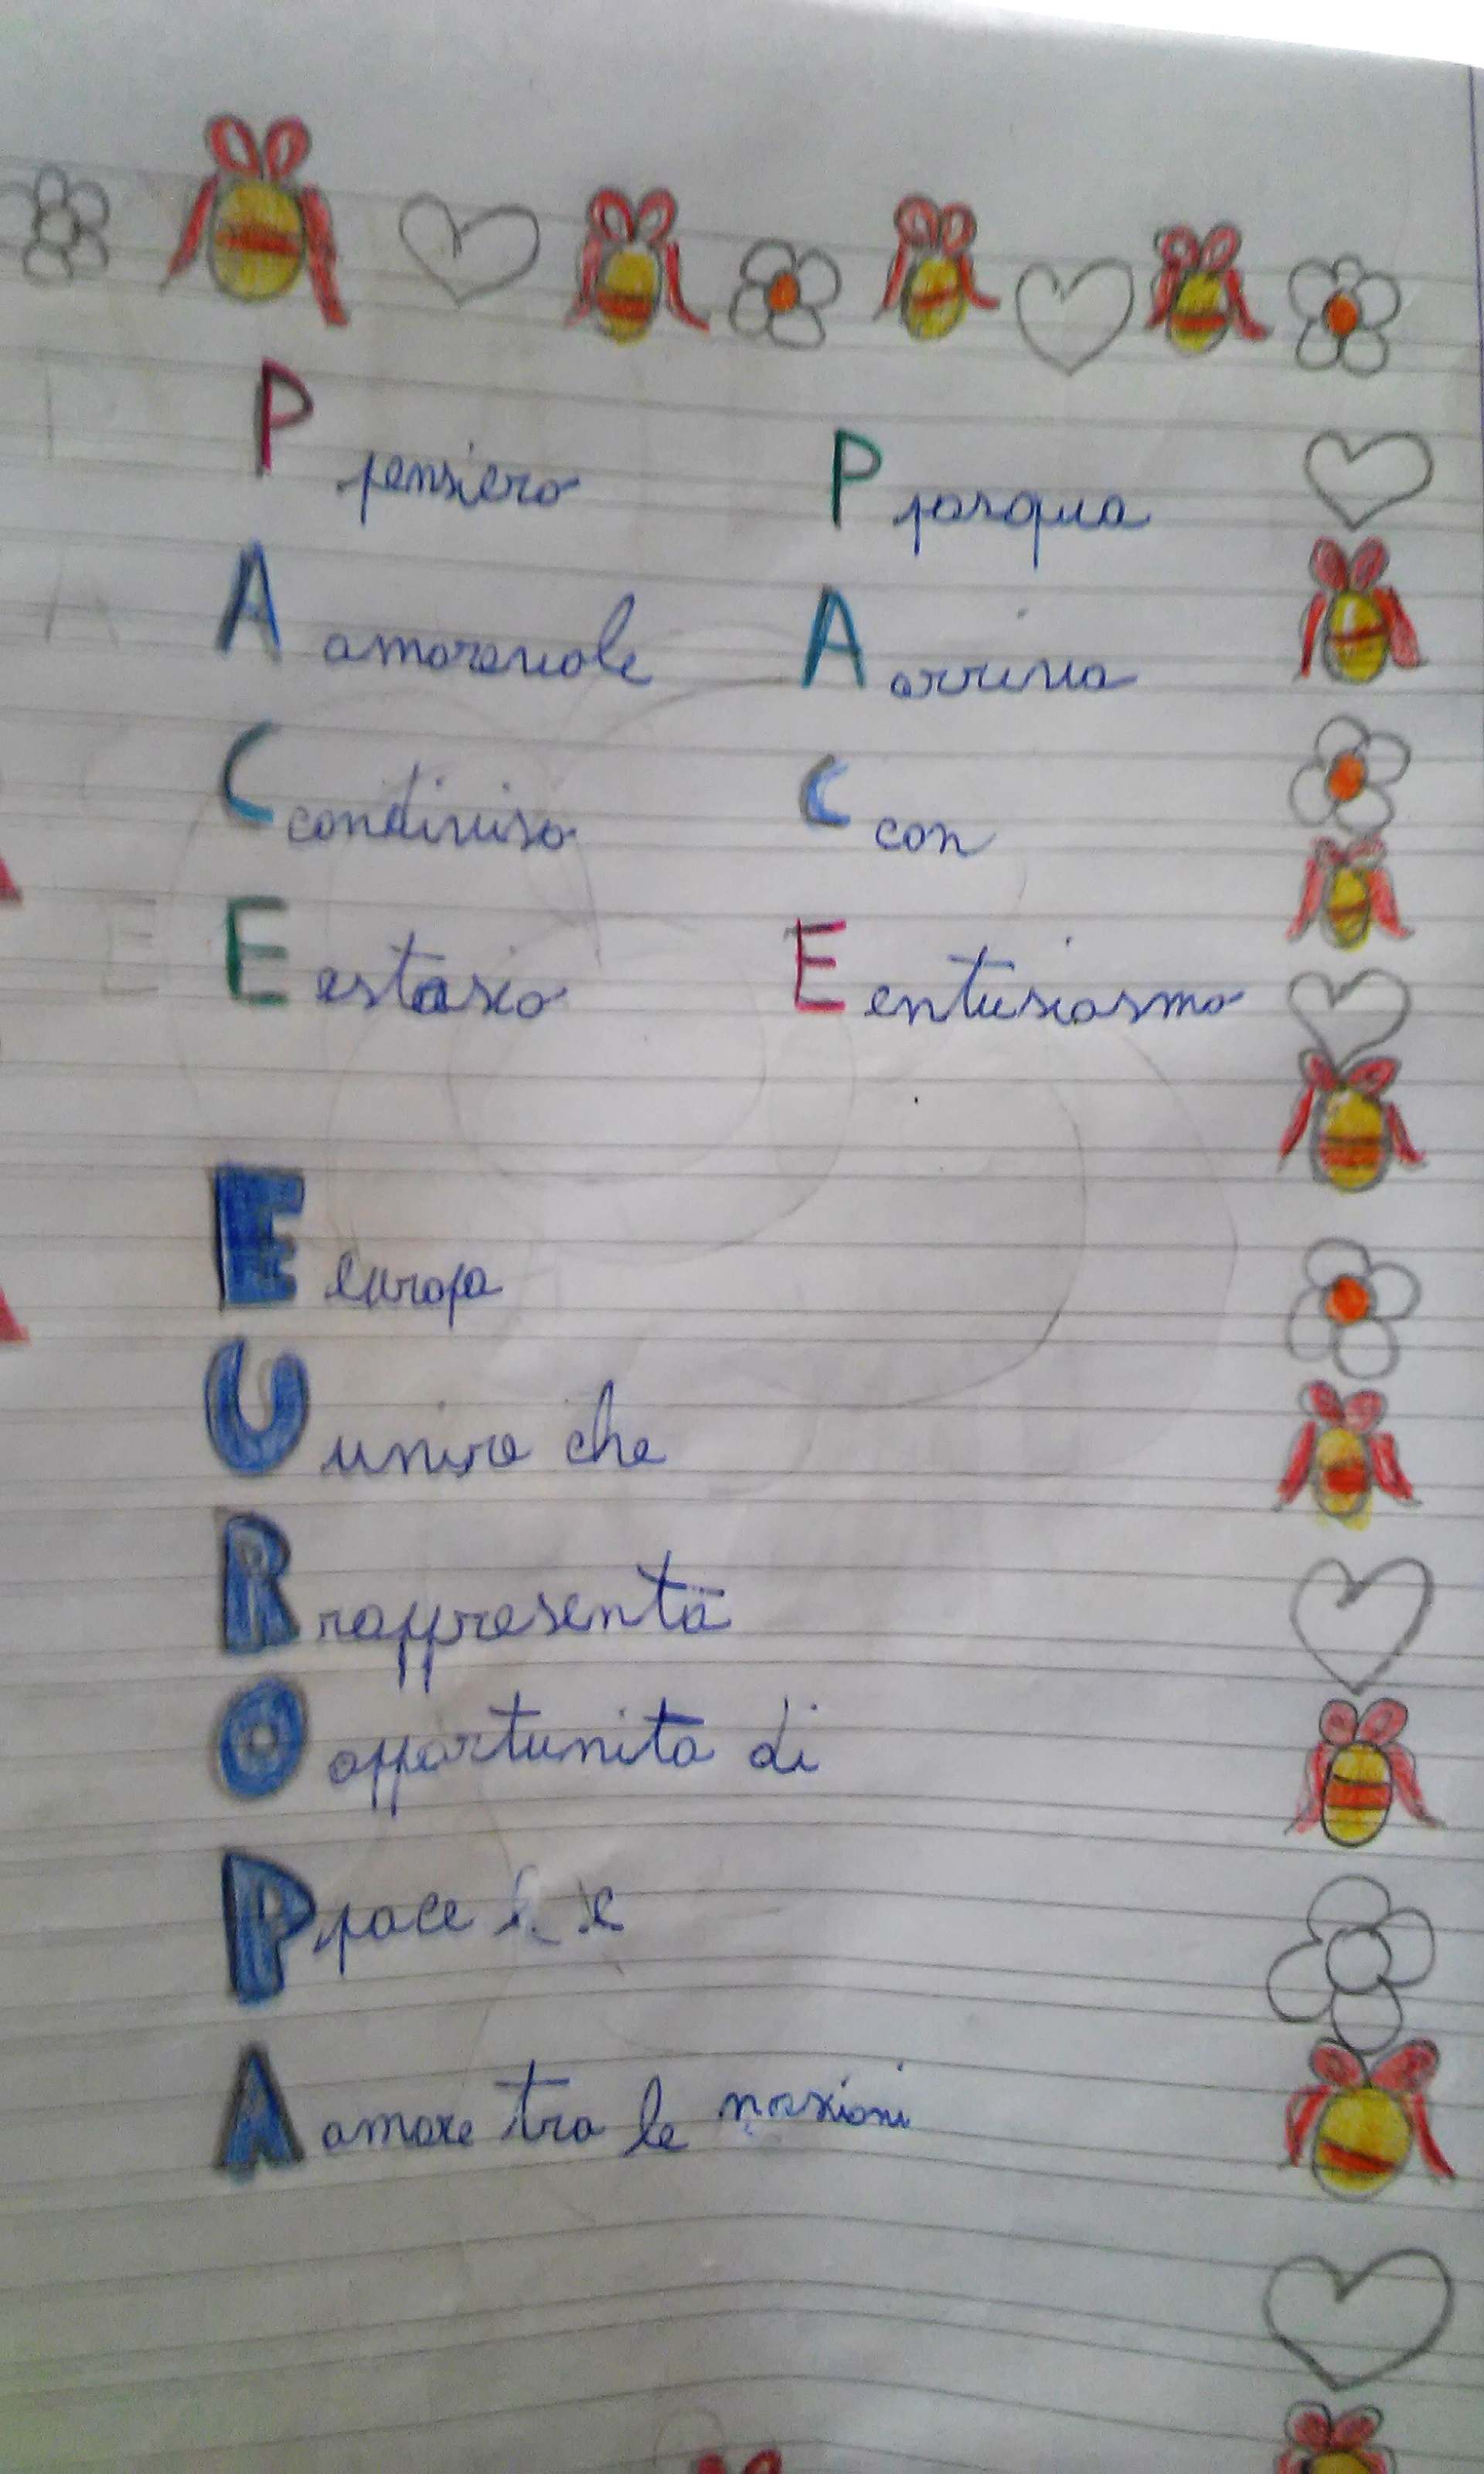 P pensiero
A amorevole
C condiviso
E estasio
P pasqua
A arriva
C con
E entusiasmo
E europa
U unire che
R rappresenta
O opportunita di
P pace e
A amore tra le nazioni